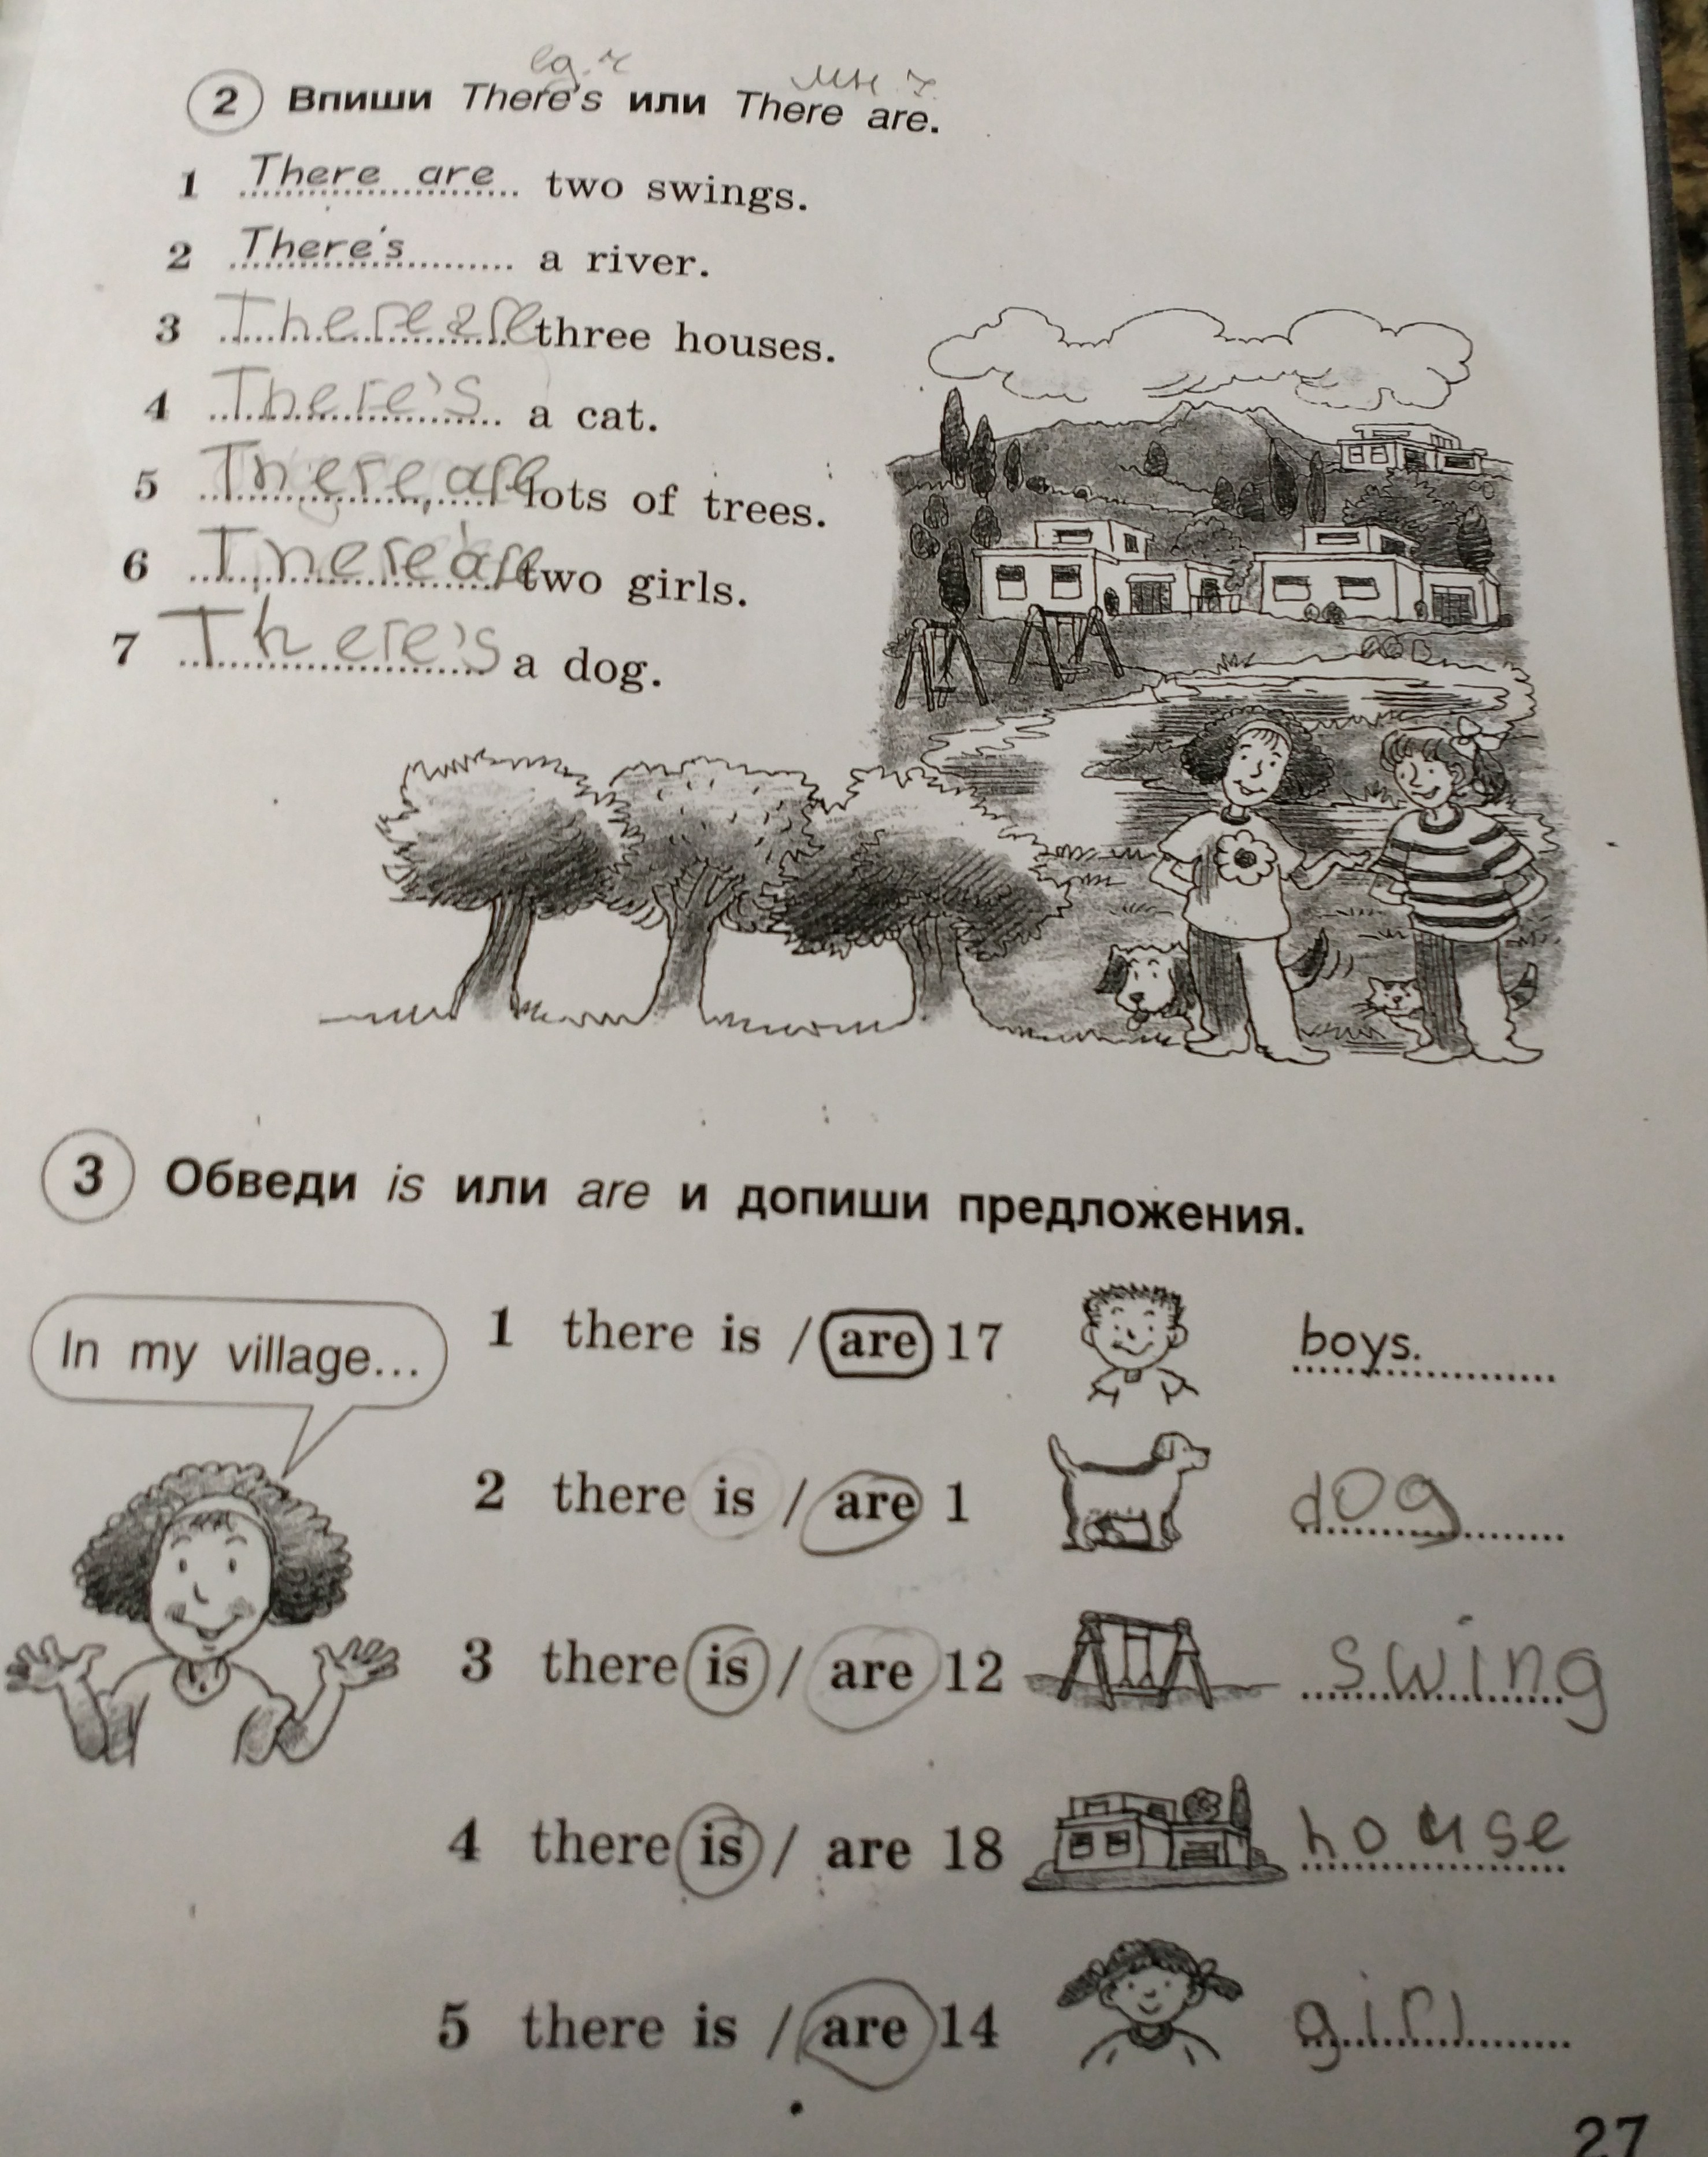 ед.ч мн ч.
2 Впиши There's или There are.
1 There are two swings.
2 There's a river.
3 There are three houses.
4 There's a cat.
5 There are lots of trees.
6 There are two girls.
7 There's a dog.
3 Обведи is или are и допиши предложения.
In my village...
1 there is / are 17 boys.
2 there is / are 1 dog
3 there is / are 12 swing
4 there is / are 18 house
5 there is / are 14 girl
27